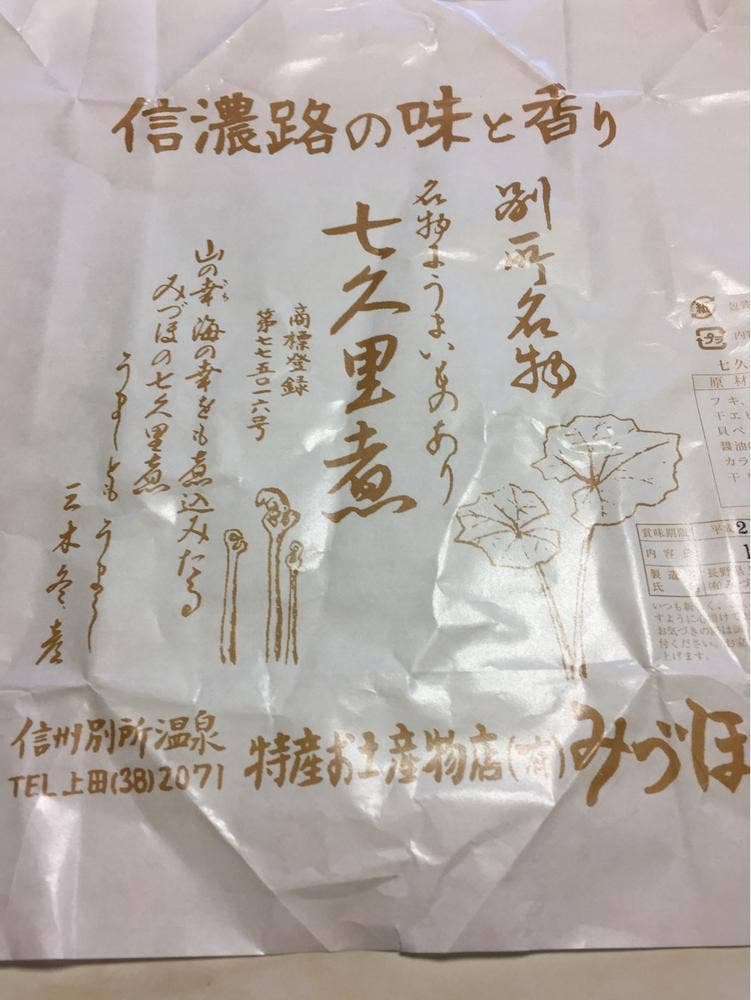 信濃路の味と香り
別所名物
名物にうまいものあり
七久里煮
商標登録
第七七五〇一六号
山の幸海の幸をも煮込みたる
みづほの七久里煮
うましともうまし
信州別所温泉
TEL上田(38)2071
特産お土産物店(有)みづほ
紙
プラ
七久
原材
フキ、
干エ
貝ベ
醤油
カラ
干
賞味期限
平成2
内容
1
製造
氏
長野
いつも
すように
お気づきの
付ください。
上げます。